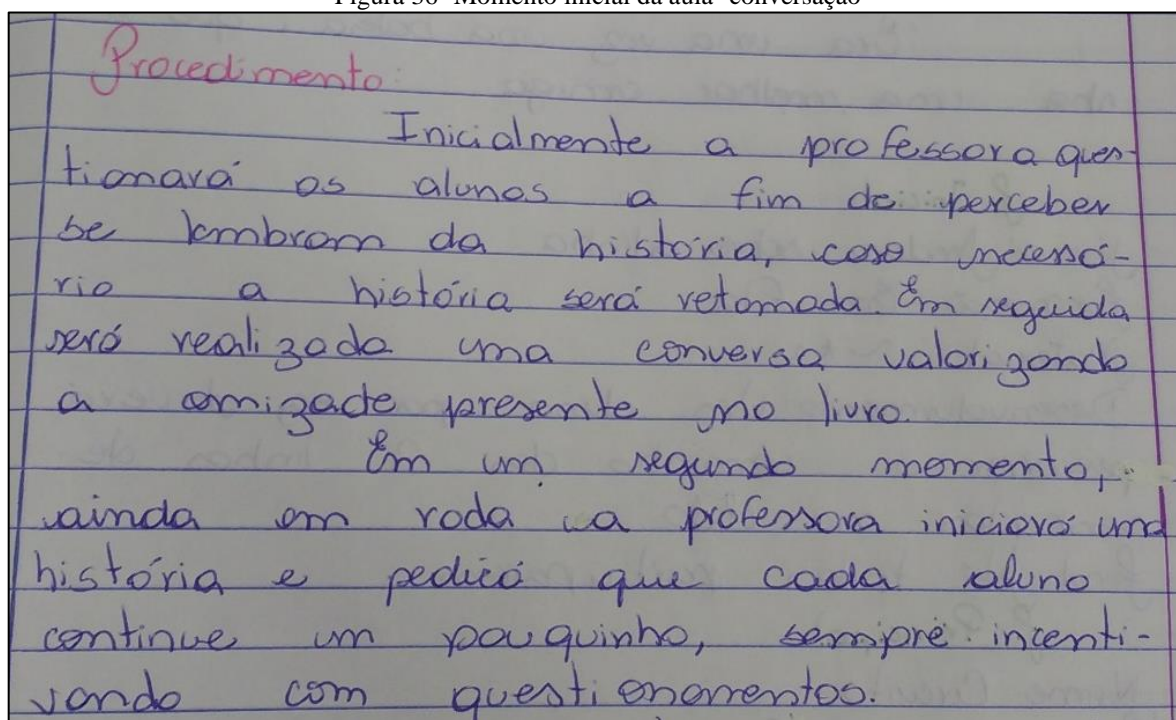 Figura 36- Momento inicial da aula- conversação
Procedimento:
Inicialmente a professora ques-
tionará os alunos a fim de perceber
se lembram da história, caso necessá-
rio a história será retomada. Em seguida
será realizada uma conversa valorizando
a amizade presente no livro.
Em um segundo momento,
ainda em roda a professora iniciará uma
história e pedirá que cada aluno
continue um pouquinho, sempre incenti-
vando com questionamentos.